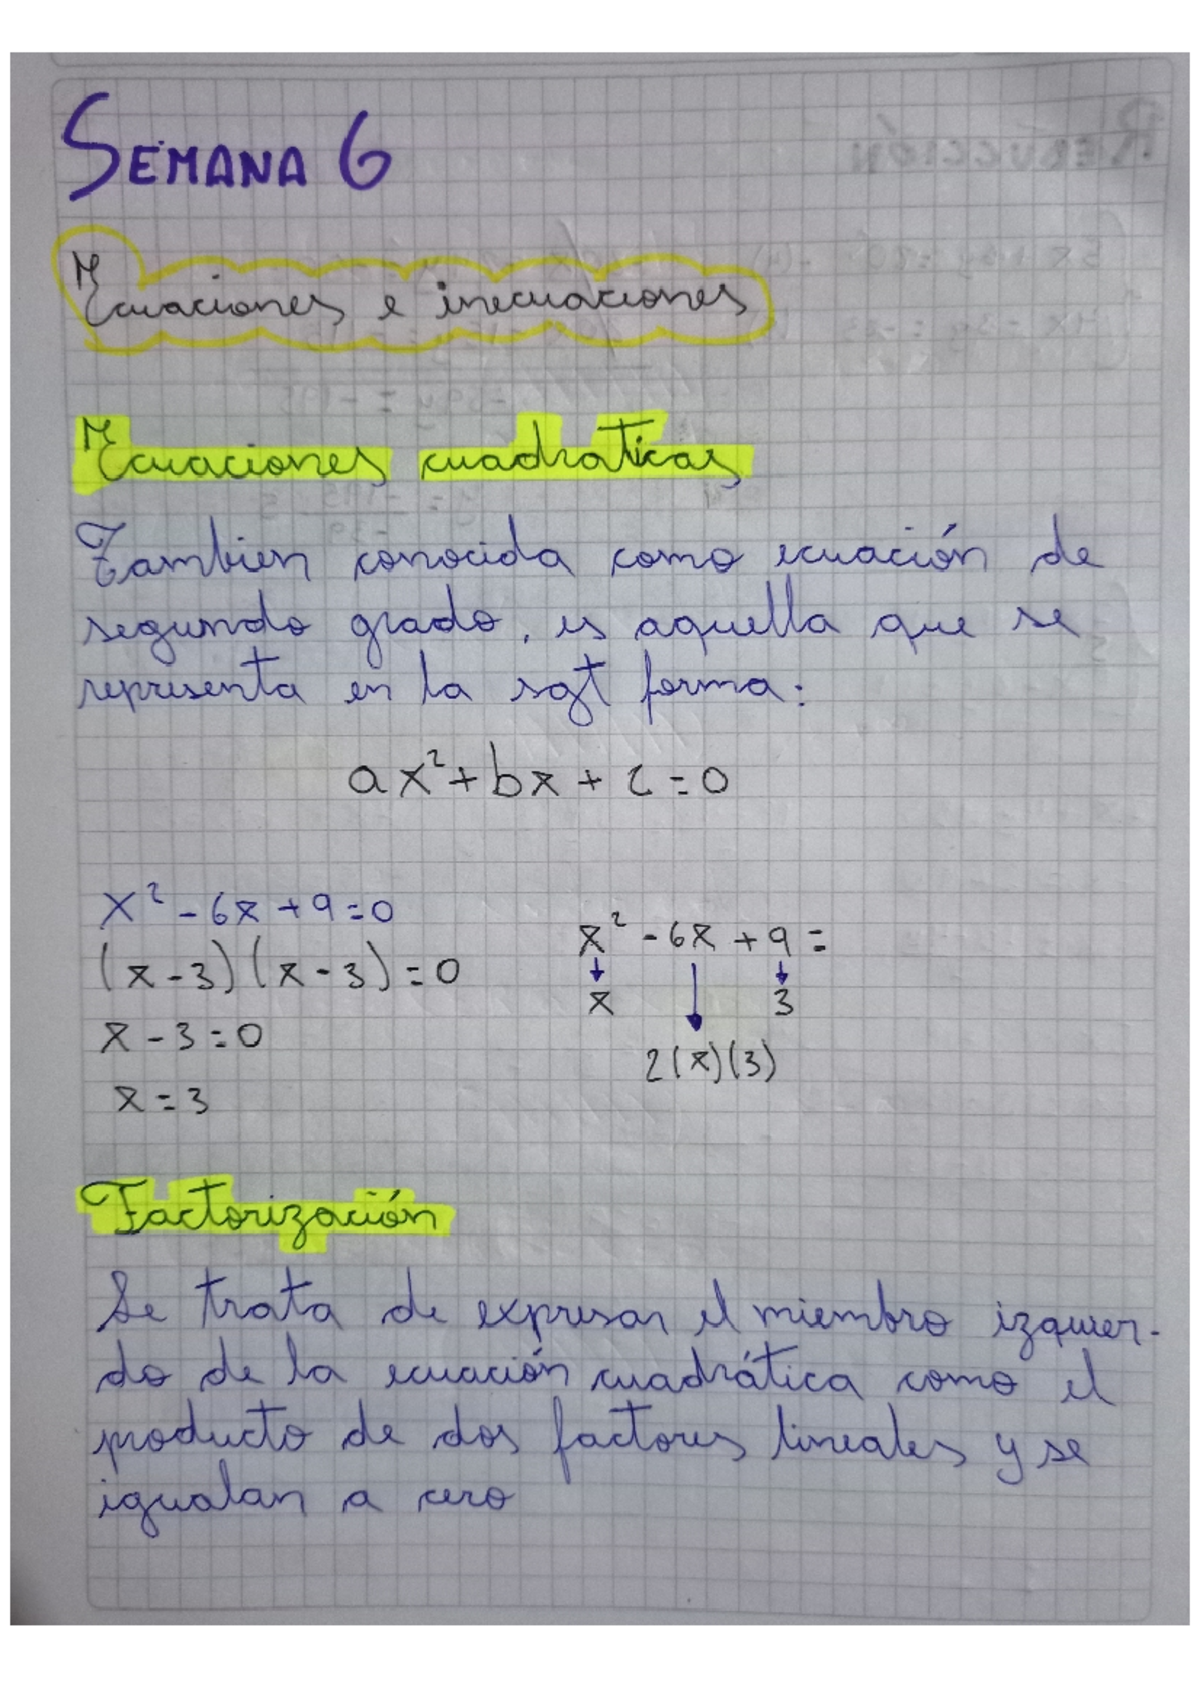 SEMANA 6
Ecuaciones e inecuaciones
Ecuaciones cuadraticas
Tambien conocida como ecuación de
segundo grado, es aquella que se
representa en la sgt forma:
ax²+bx+c=0
x²-6x+9=0
(x-3)(x-3)=0
x-3=0
x=3
x²-6x+9=
x 3
2(x)(3)
Factorización
Se trata de expresar el miembro izquier-
do de la ecuación cuadrática como el
producto de dos factores lineales y se
igualan a cero